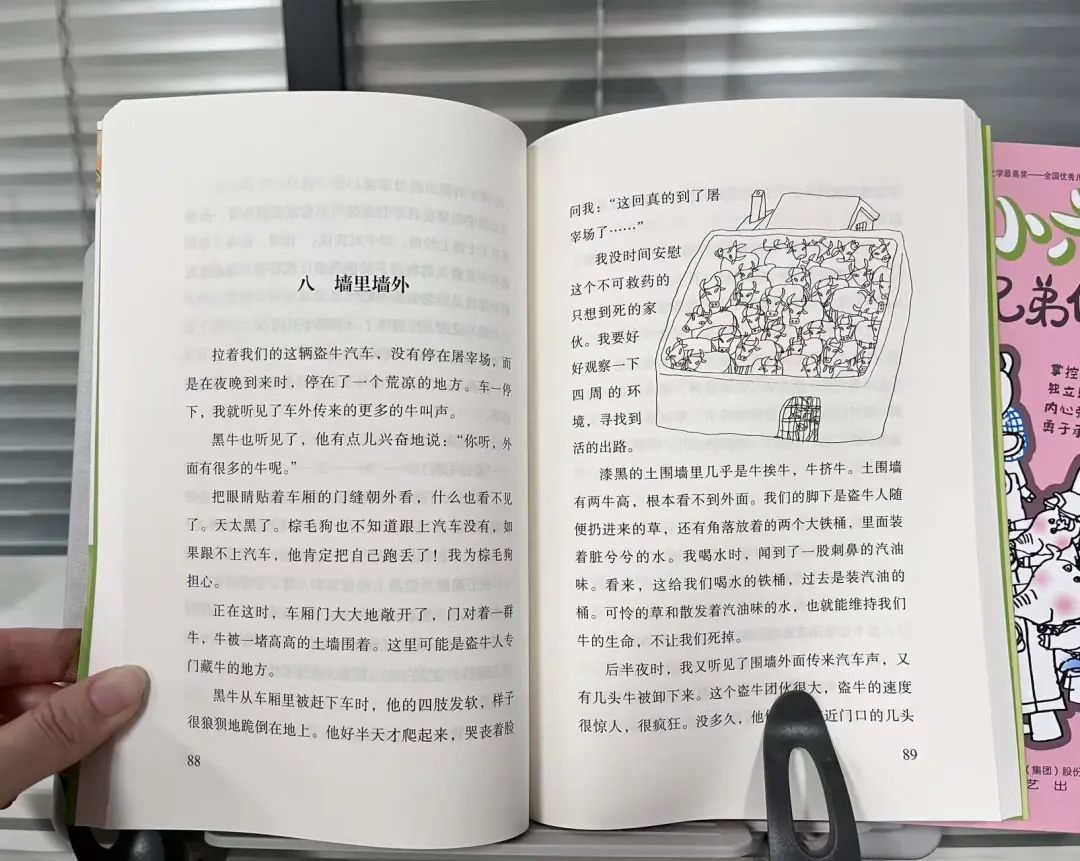 八 墙里墙外
拉着我们的这辆盗牛汽车，没有停在屠宰场，而
是在夜晚到来时，停在了一个荒凉的地方。车一停
下，我就听见了车外传来的更多的牛叫声。
黑牛也听见了，他有点儿兴奋地说：“你听，外
面有很多的牛呢。”
把眼睛贴着车厢的门缝朝外看，什么也看不见
了。天太黑了。棕毛狗也不知道跟上汽车没有，如
果跟不上汽车，他肯定把自己跑丢了！我为棕毛狗
担心。
正在这时，车厢门大大地敞开了，门对着一群
牛，牛被一堵高高的土墙围着。这里可能是盗牛人专
门藏牛的地方。
黑牛从车厢里被赶下车时，他的四肢发软，样子
很狼狈地跪倒在地上。他好半天才爬起来，哭丧着脸
88
问我：“这回真的到了屠
宰场了……”
我没时间安慰
这个不可救药的
只想到死的家
伙。我要好
好观察一下
四周的环
境，寻找到
活的出路。
漆黑的土围墙里几乎是牛挨牛，牛挤牛。土围墙
有两牛高，根本看不到外面。我们的脚下是盗牛人随
便扔进来的草，还有角落放着的两个大铁桶，里面装
着脏兮兮的水。我喝水时，闻到了一股刺鼻的汽油
味。看来，这给我们喝水的铁桶，过去是装汽油的
桶。可怜的草和散发着汽油味的水，也就能维持我们
牛的生命，不让我们死掉。
后半夜时，我又听见了围墙外面传来汽车声，又
有几头牛被卸下来。这个盗牛团伙很大，盗牛的速度
很惊人，很疯狂。没多久，他 近门口的几头
89
学最高奖——全国优秀儿
小
兄弟
掌控
独立
内心
勇于
（集团）股份
艺 出